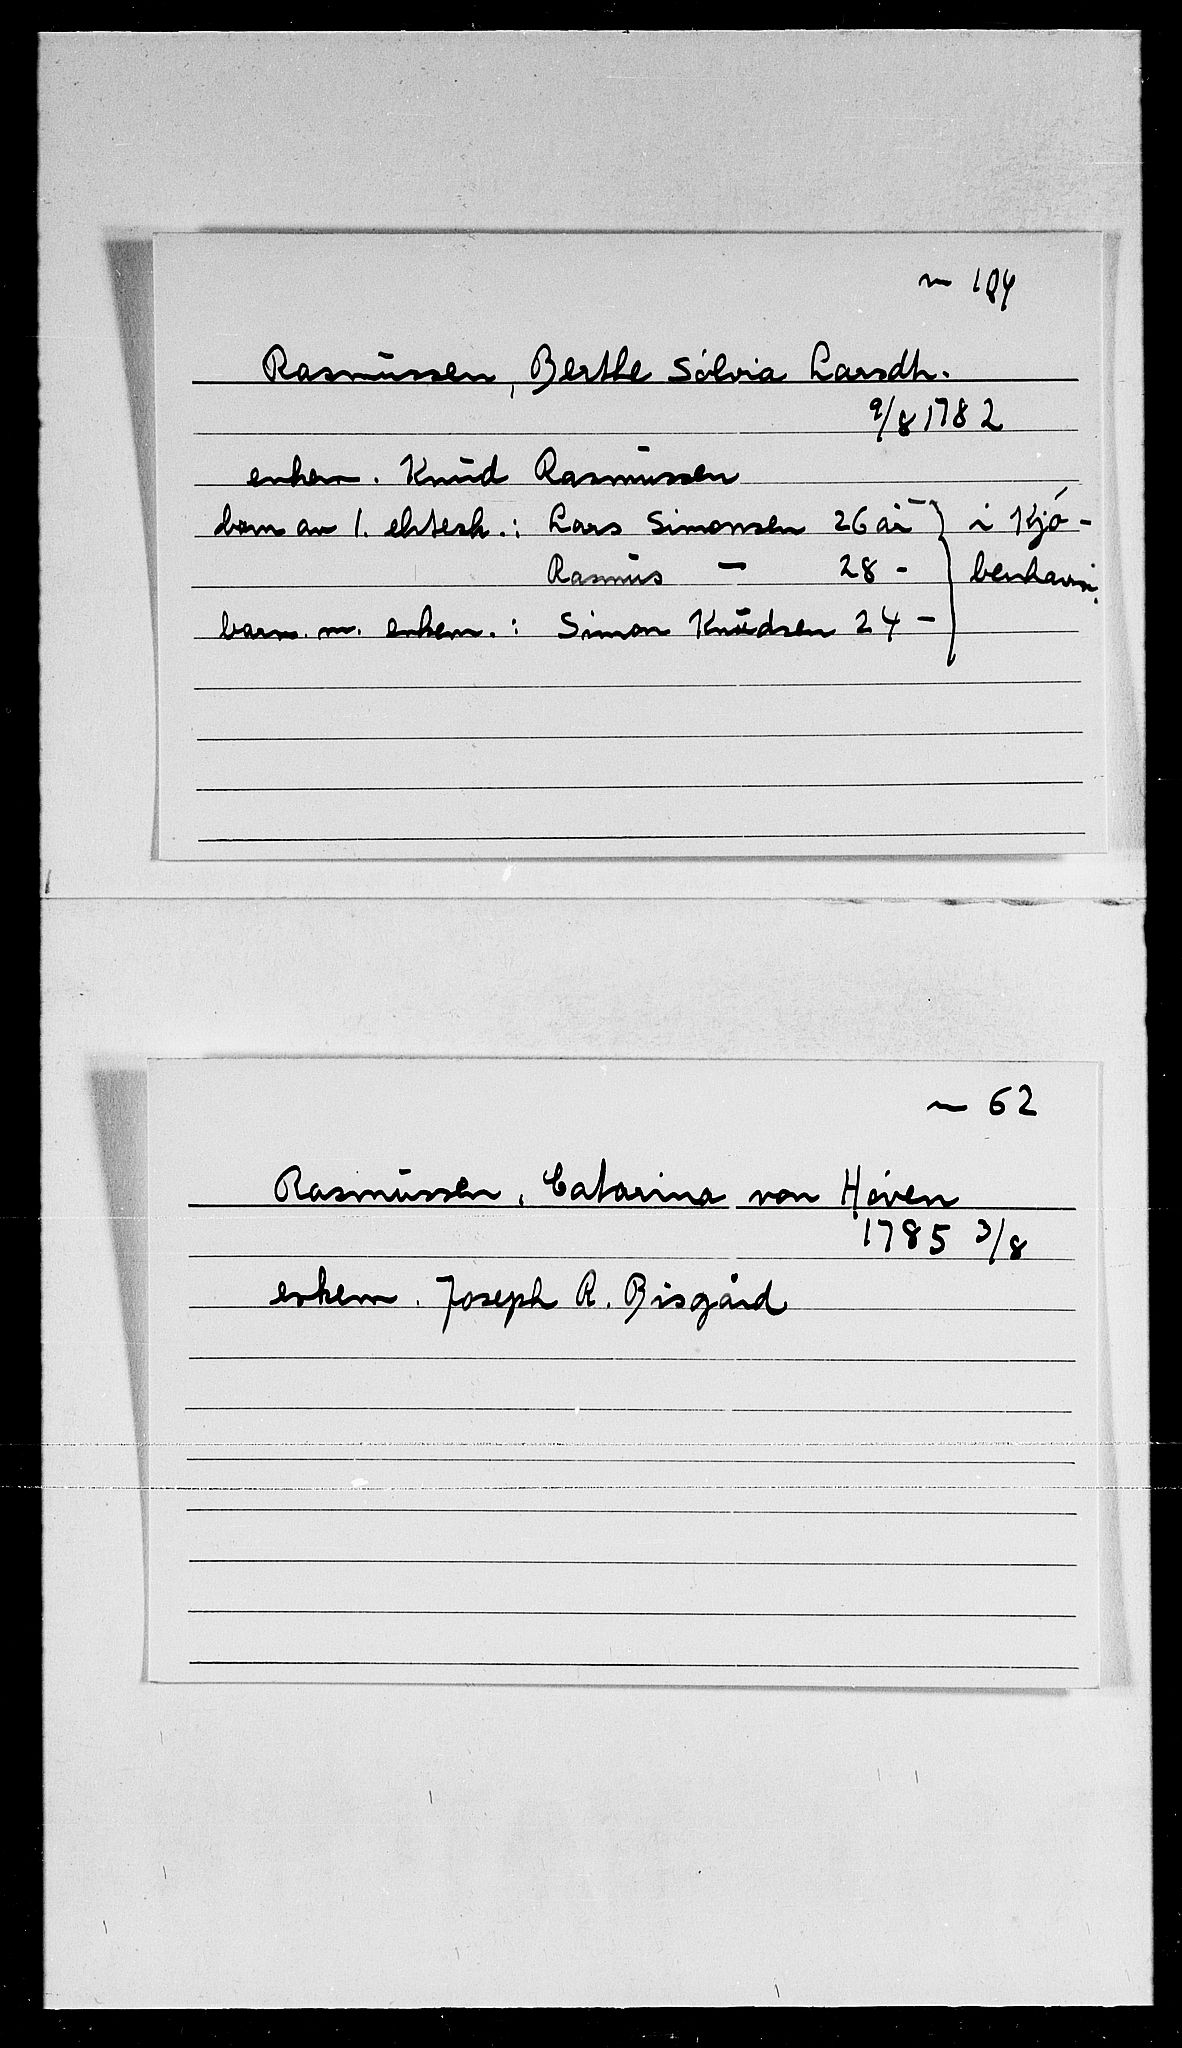 ~ 184
Rasmussen, Berthe Sølvia Larsdtr.
9/8 1782
enkem. Knud Rasmussen
barn av 1. ektesk.: Lars Simonsen 26 år } i Kjø-
Rasmus — 28 - benhavn.
barn m. enkem.: Simon Knudsen 24 —
~ 62
Rasmussen, Catarina von Høven
1785 3/8
enkem. Joseph R. Bisgård